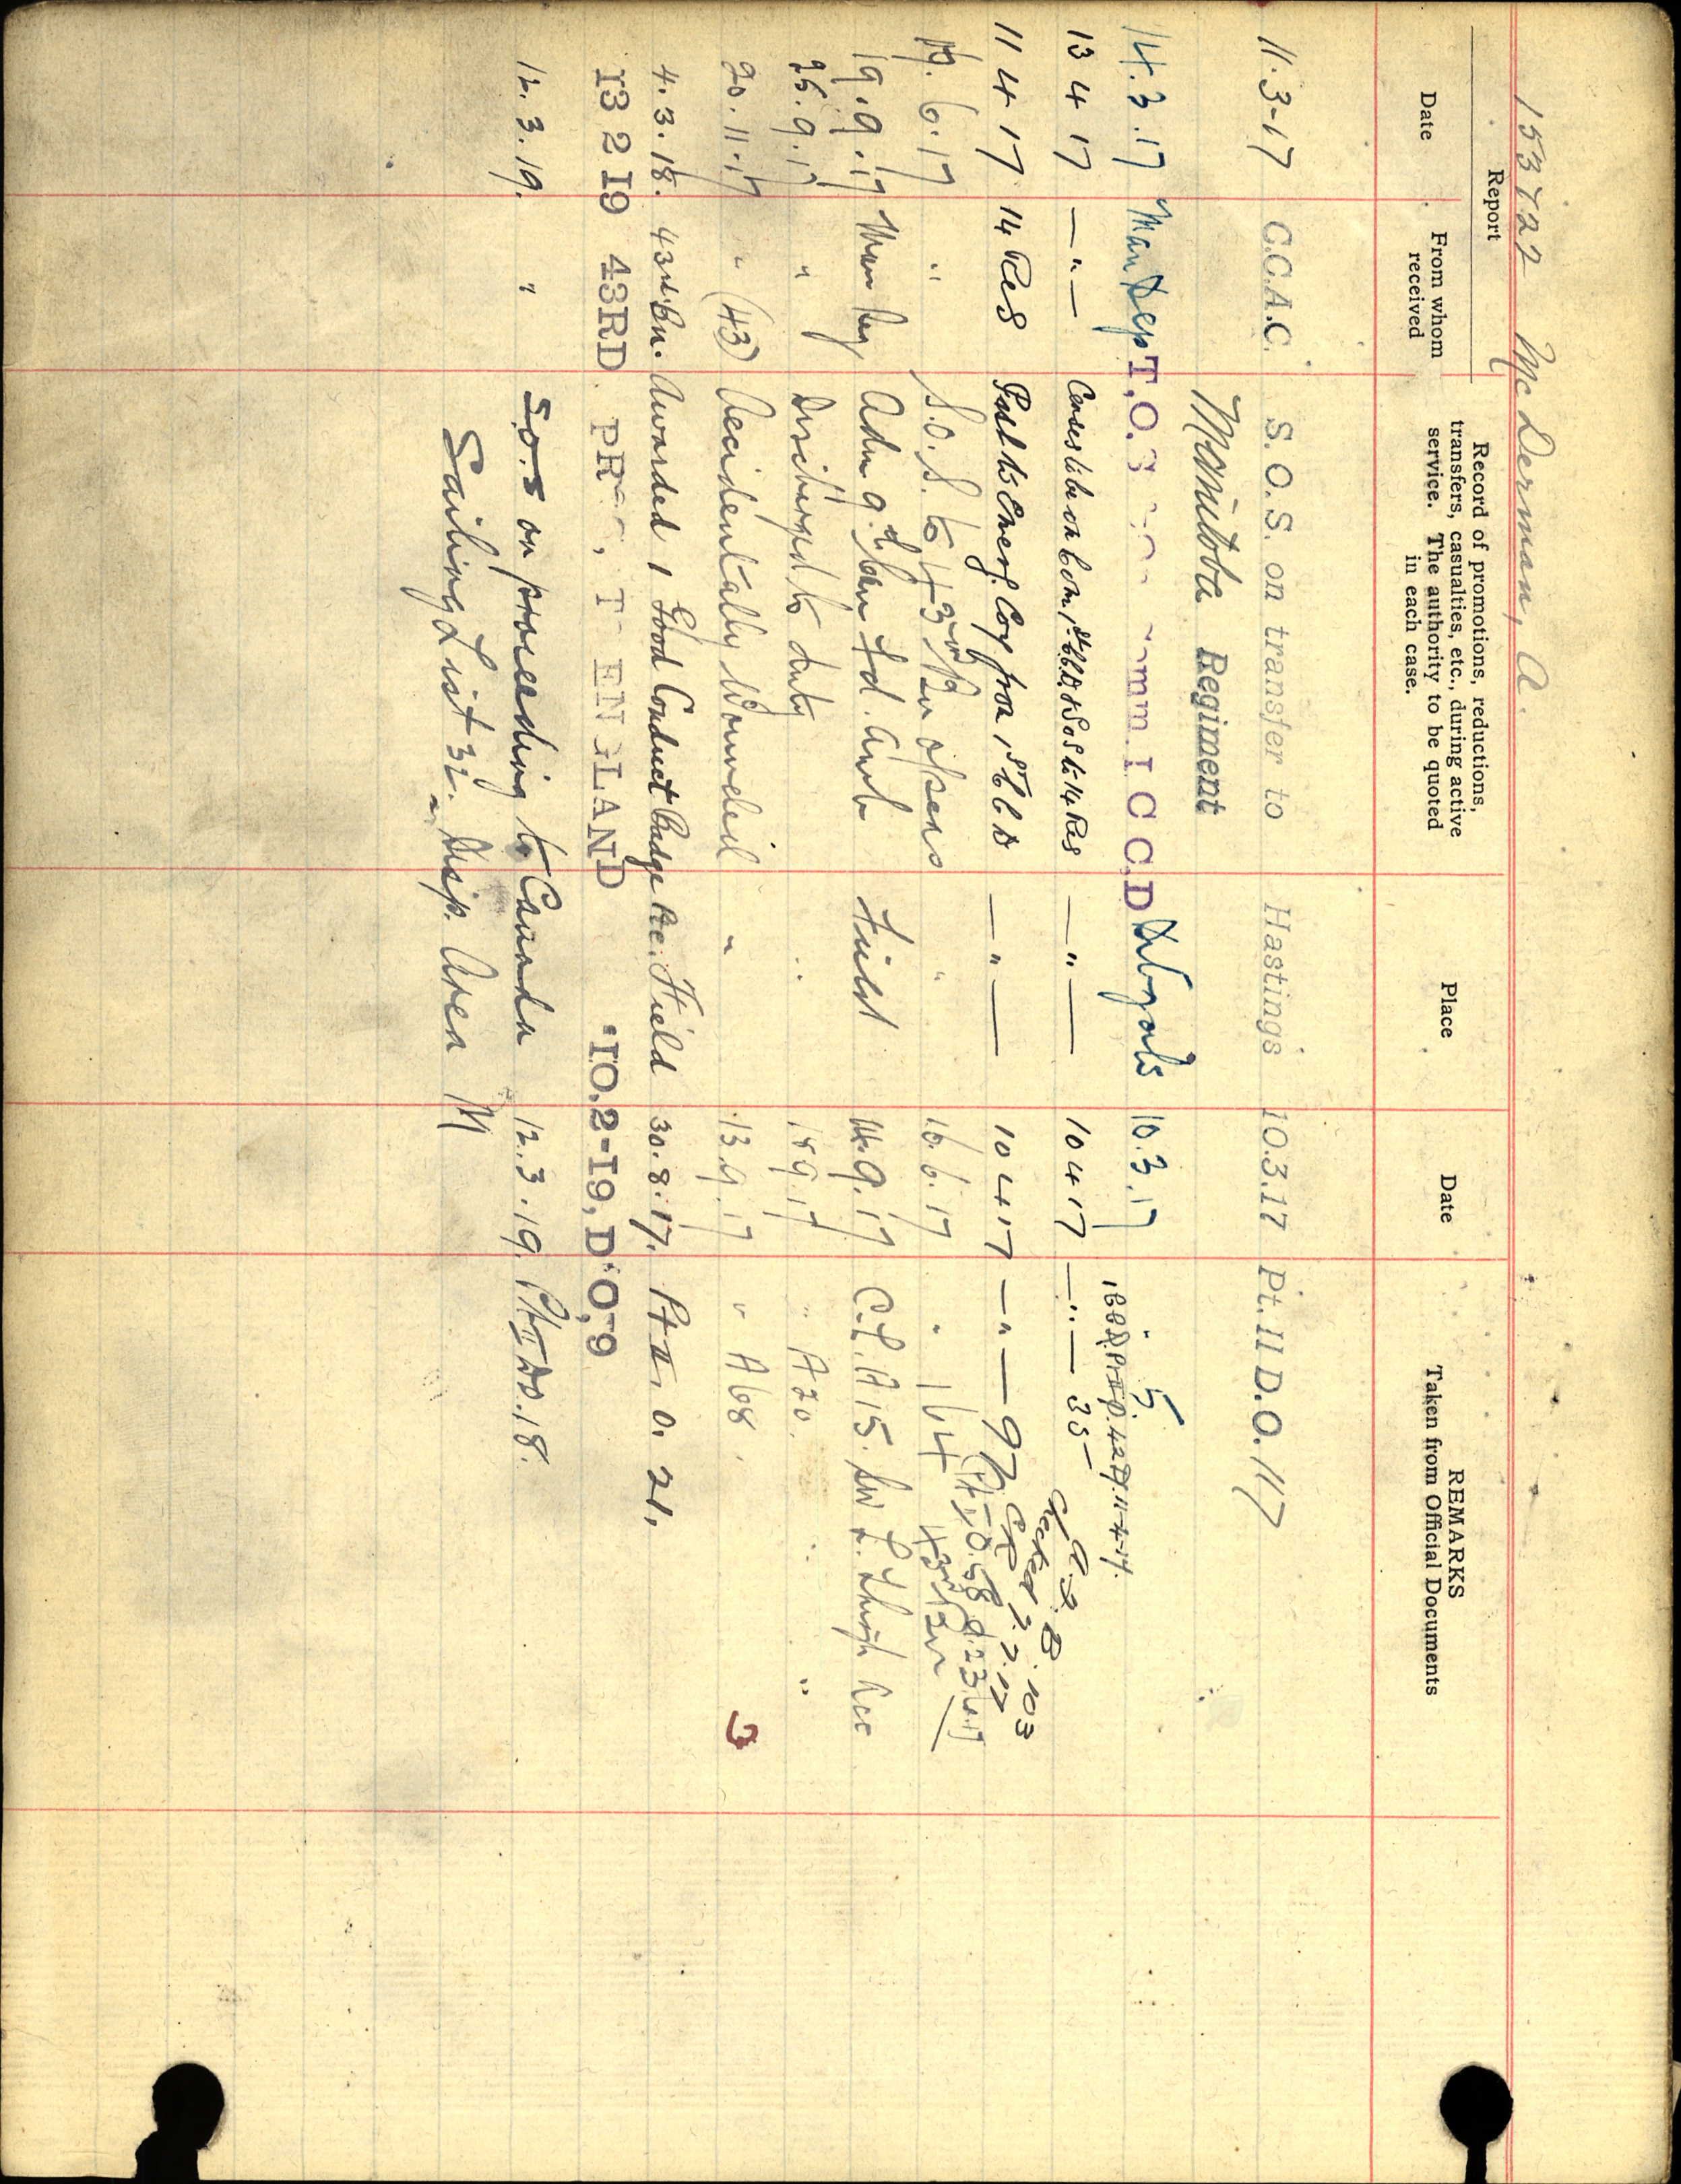 153422 McDerman, A.
Report
Date
From whom received
Record of promotions, reductions, transfers, casualties, etc., during active service. The authority to be quoted in each case.
Place
Date
REMARKS
Taken from Official Documents
11-3-17 C.C.A.C. S.O.S. on transfer to Hastings 10.3.17 Pt. II D.O. 117
Manitoba Regiment
14.3.17 Man Dep T.O.S I C C.D 10.3.17 5
13 4 17 — " — Ceases to be on Com, 1st CCD & SoS to 14 Res — " — 10 4 17 — " — 35
11 4 17 14 Res Post to Emerg. Coy from 1st CCD — " — 10 4 17 — " — 97
Checked 7.7.17
.6.17 " S.O.S. to 43rd Bn o/seas " 16.6.17 " 164 43rd Bn
19.9.17 Man Reg Adm 9th Can Fd. Amb Field 14.9.17 C.L. A 15. L. Thigh Acc
25.9.17 " Discharged to duty " 18 9 17 " A 20. " "
20.11.17 " (43) Accidentally Wounded " 13.9.17 " A 68.
4.3.18. 43rd Bn. Awarded 1 Good Conduct Badge Field 30.8.17. Pt II. O. 21.
13 2 19 43RD ENGLAND 10.2-19, D.O, 9
12.3.19. " S.O.S on proceeding to Canada 12.3.19. Pt II DO. 18.
Sailing List 32. Disp. Area M